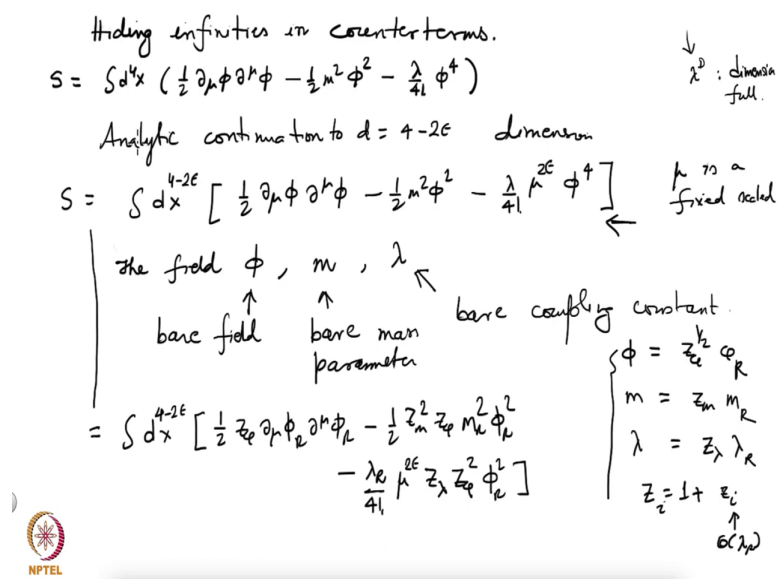 Hiding infinities in counterterms.
S = ∫d⁴x (½ ∂μφ ∂^μφ − ½ m² φ² − λ/4! φ⁴)
↓
λ^D : dimension full.
Analytic continuation to d = 4 − 2ε dimension
S = ∫ dx^{4−2ε} [ ½ ∂μφ ∂^μφ − ½ m²φ² − λ/4! μ^{2ε} φ⁴ ]
←
μ is a fixed scaled
The field φ , m , λ
↑ ↑ ↖
bare field bare mass parameter bare coupling constant.
φ = Z_φ^{1/2} φ_R
m = Z_m m_R
λ = Z_λ λ_R
Z_i = 1 + z_i
↑
O(λ_R)
= ∫ dx^{4−2ε} [ ½ Z_φ ∂μφ_R ∂^μφ_R − ½ Z_m² Z_φ m_R² φ_R²
− λ_R/4! μ^{2ε} Z_λ Z_φ² φ_R² ]
NPTEL